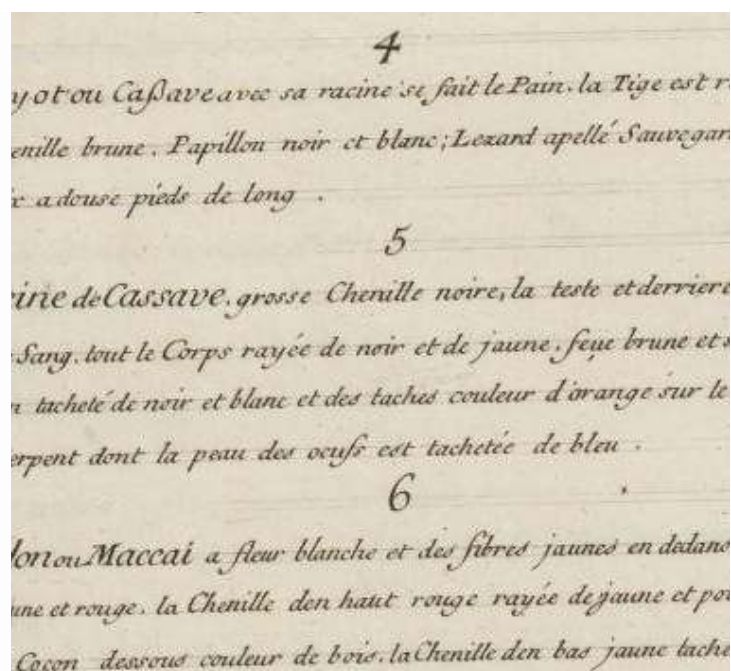 4
yot ou Caßave avec sa racine se fait le Pain. la Tige est r
enille brune. Papillon noir et blanc; Lezard apellé Sauvegar
x a douse pieds de long .
5
cine de Cassave. grosse Chenille noire, la teste et derriere
Sang. tout le Corps rayée de noir et de jaune. feue brune et
n tacheté de noir et blanc et des taches couleur d'orange sur le
erpent dont la peau des oeufs est tachetée de bleu .
6
lon ou Maccai a fleur blanche et des fibres jaunes en dedans
une et rouge. la Chenille den haut rouge rayée de jaune et po
Cocon dessous couleur de bois. la Chenille den bas jaune tache